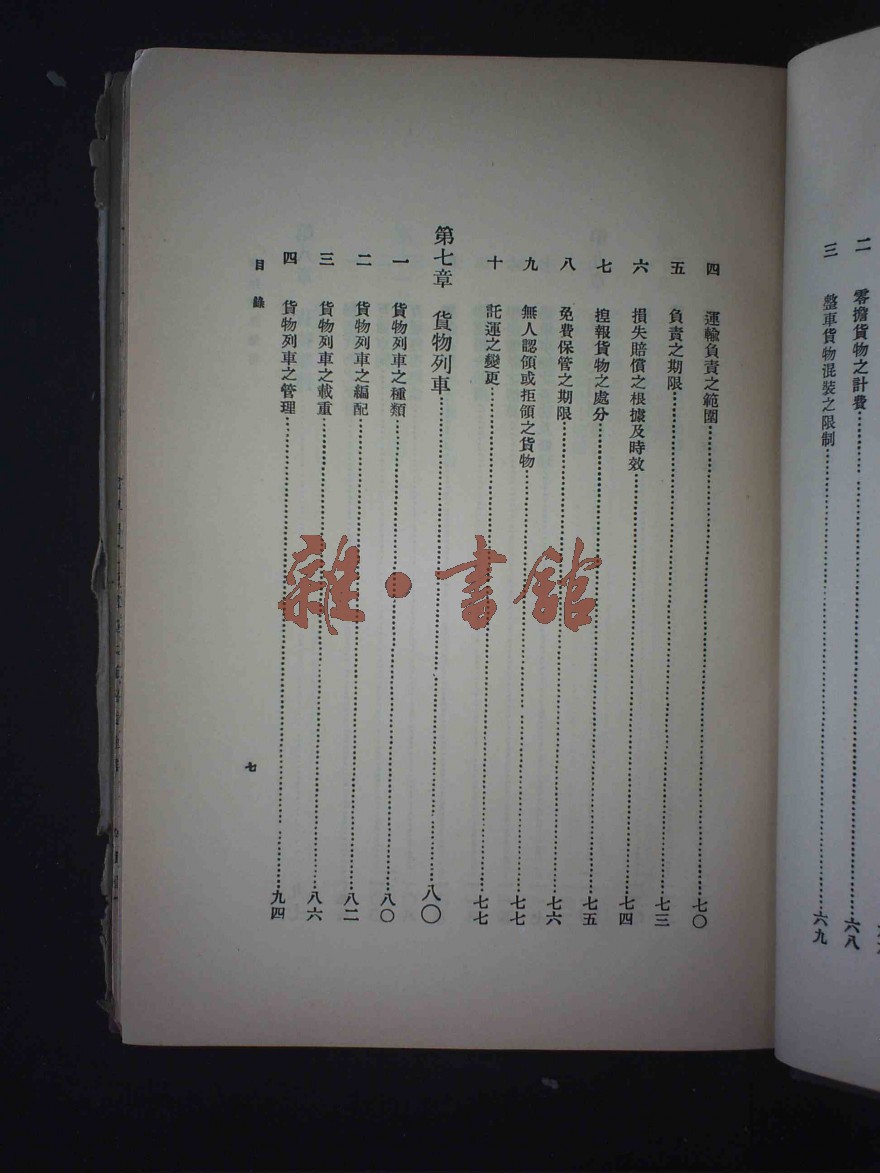 二 零擔貨物之計費……六八
三 整車貨物混裝之限制……六九
四 運輸負責之範圍……七〇
五 負責之期限……七三
六 損失賠償之根據及時效……七四
七 揑報貨物之處分……七五
八 免費保管之期限……七六
九 無人認領或拒領之貨物……七七
十 託運之變更……七七
第七章 貨物列車……八〇
一 貨物列車之種類……八〇
二 貨物列車之編配……八二
三 貨物列車之載重……八六
四 貨物列車之管理……九四
目錄
七
雜·書館